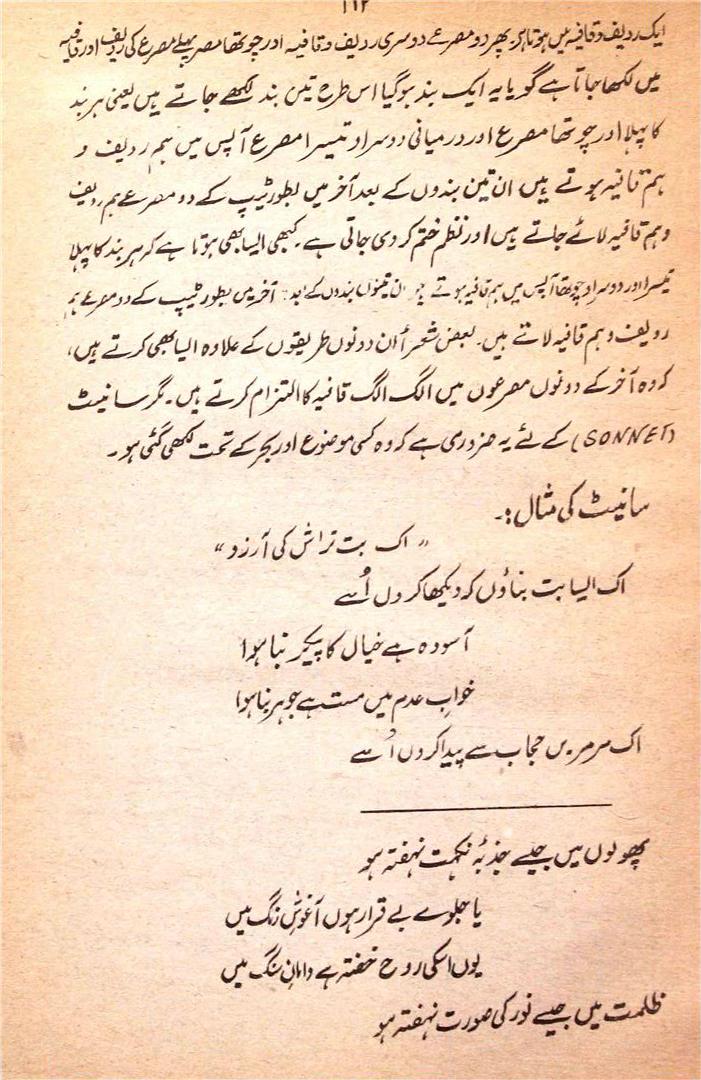 ۱۱۲
ایک ردیف و قافیہ میں ہوتا ہے پھر دو مصرعے دوسری ردیف و قافیہ اور چوتھا مصرع پہلے مصرع کی ردیف اور قافیہ
میں لکھا جاتا ہے گویا یہ ایک بند ہو گیا اس طرح تین بند لکھے جاتے ہیں یعنی ہر بند
کا پہلا اور چوتھا مصرع اور درمیانی دوسرا و تیسرا مصرع آپس میں ہم ردیف و
ہم قافیہ ہوتے ہیں ان تین بندوں کے بعد آخر میں بطور ٹیپ کے دو مصرعے ہم ردیف
و ہم قافیہ لائے جاتے ہیں اور نظم ختم کر دی جاتی ہے۔ کبھی ایسا بھی ہوتا ہے کہ ہر بند کا پہلا
تیسرا اور دوسرا و چوتھا آپس میں ہم قافیہ ہوتے ہیں ان تینوں بندوں کے بعد آخر میں بطور ٹیپ کے دو مصرعے ہم
ردیف و ہم قافیہ لاتے ہیں۔ بعض شعرأ ان دونوں طریقوں کے علاوہ ایسا بھی کرتے ہیں،
کہ وہ آخر کے دونوں مصرعوں میں الگ الگ قافیہ کا التزام کرتے ہیں۔ مگر سانیٹ
(SONNET) کے لئے یہ ضروری ہے کہ وہ کسی موضوع اور بحر کے تحت لکھی گئی ہو۔
سانیٹ کی مثال:۔
"اک بت تراش کی آرزو"
اک ایسا بت بناؤں کہ دیکھا کروں اُسے
آسودہ ہے خیال کا پیکر بنا ہوا
خوابِ عدم میں مست ہے جوہر بنا ہوا
اک مرمریں حجاب سے پیدا کروں اُسے
پھولوں میں جیسے جذبۂ نکہت نہفتہ ہو
یا جلوے بے قرار ہوں آغوشِ رنگ میں
یوں اسکی روح خفتہ ہے دامانِ سنگ میں
ظلمت میں جیسے نور کی صورت نہفتہ ہو